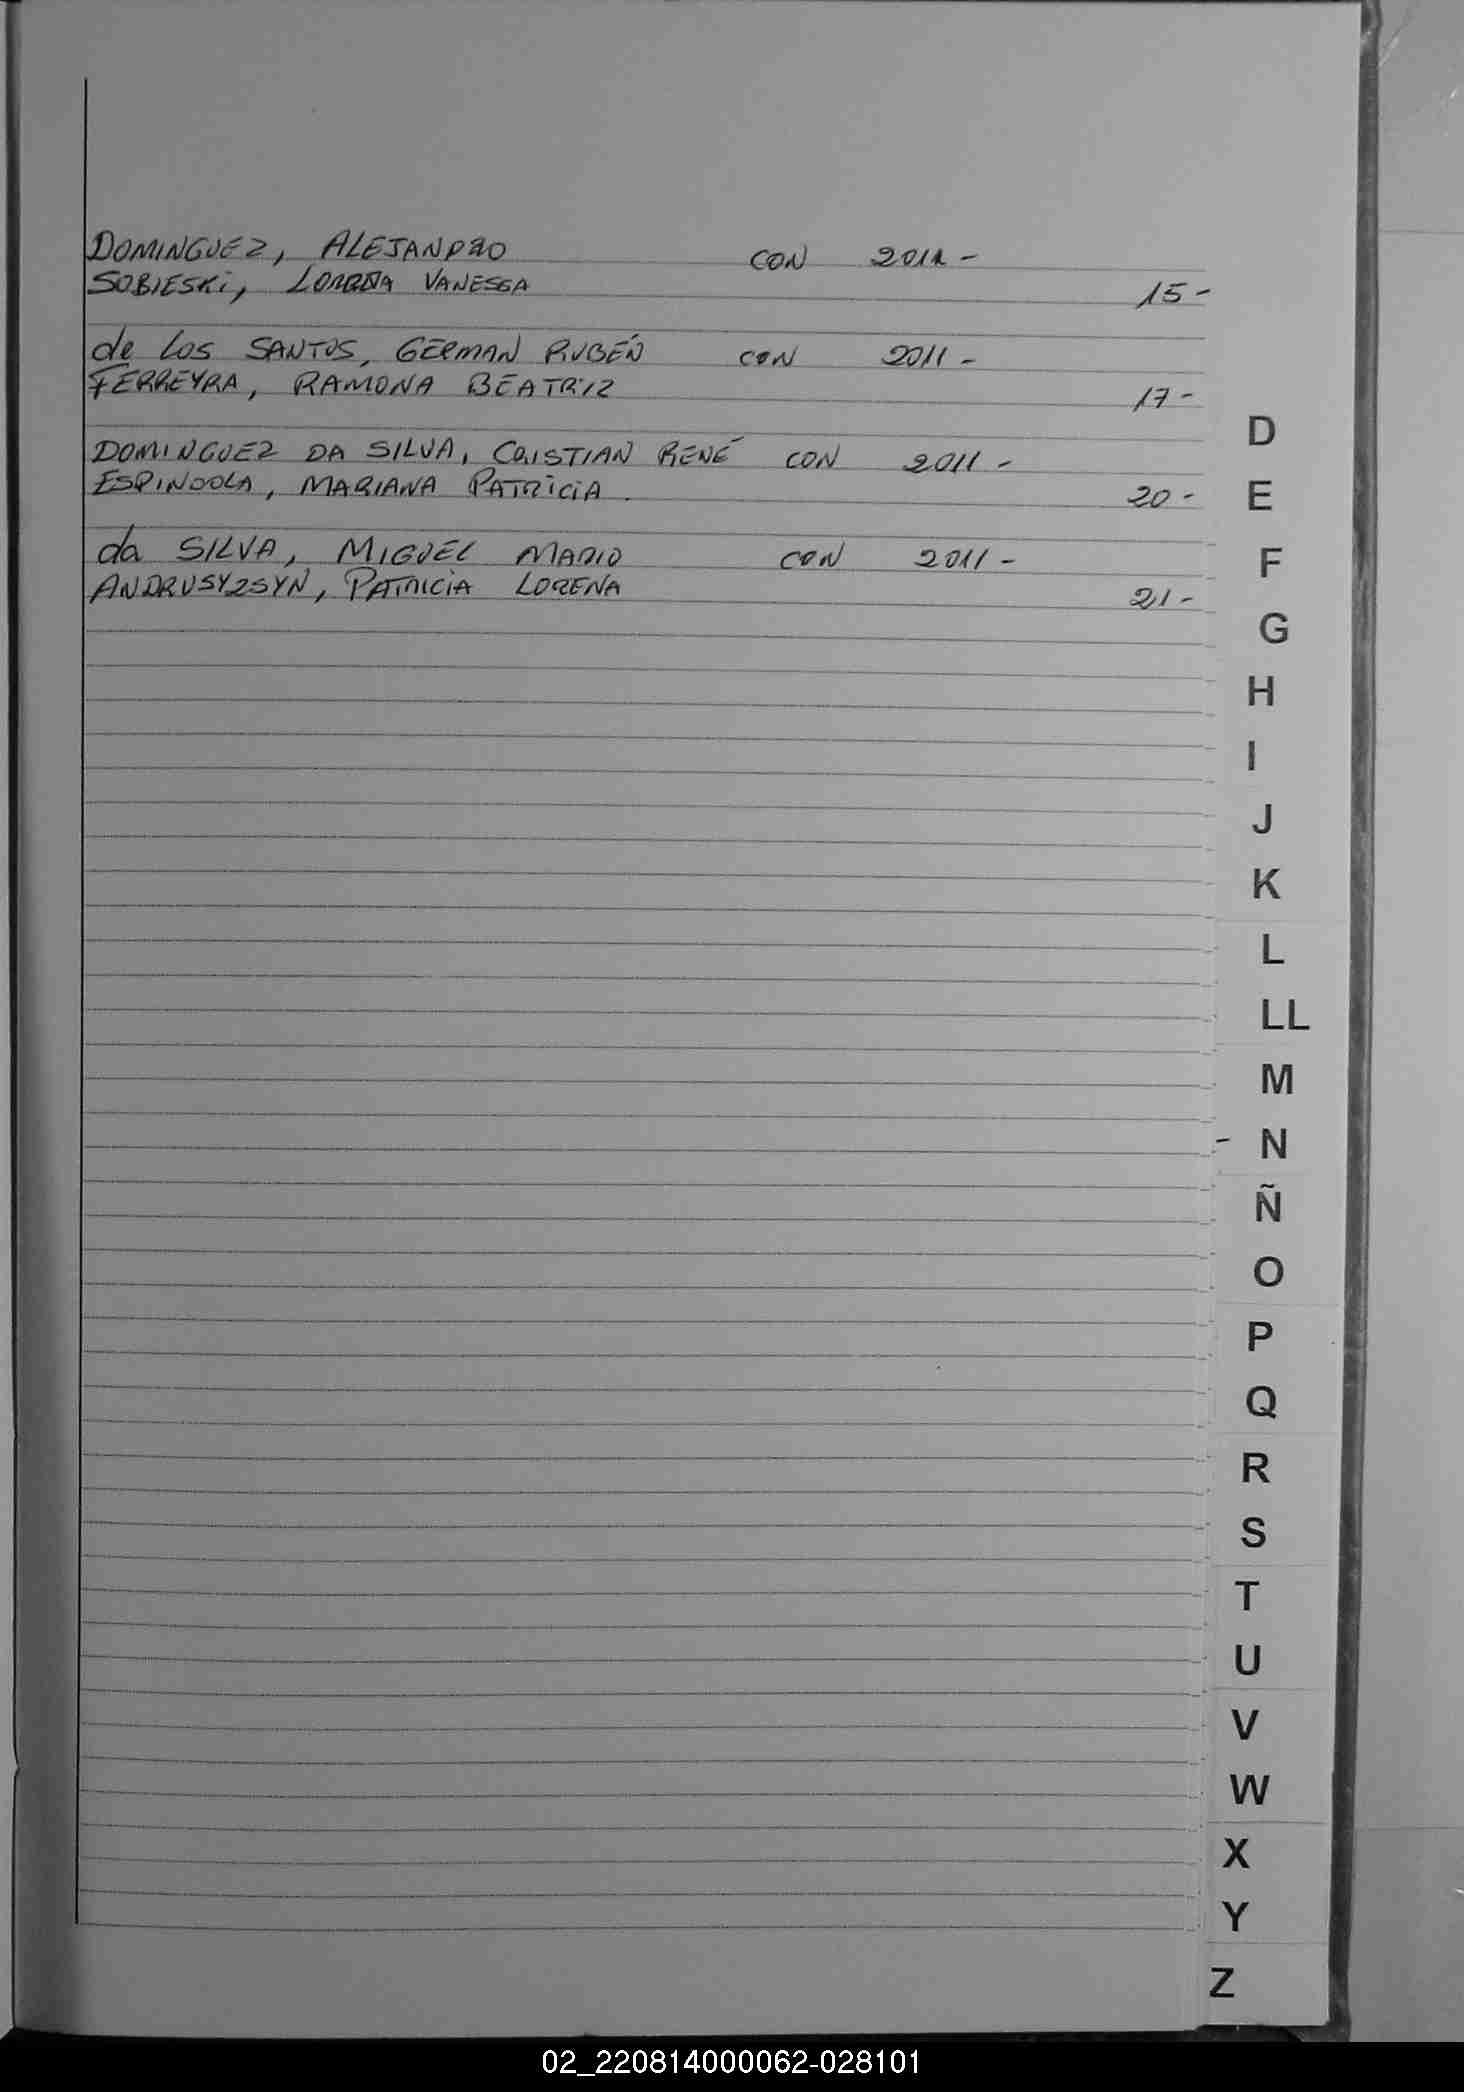 DOMINGUEZ, ALEJANDRO CON 2011-
SOBIESKi, LORENA VANESSA 15-
de los SANTOS, GERMAN RUBÉN CON 2011-
FERREYRA, RAMONA BEATRIZ 17-
DOMINGUEZ DA SILVA, CRISTIAN RENÉ CON 2011-
ESPINDOLA, MARIANA PATRICIA. 20-
da SILVA, MIGUEL MARIO CON 2011-
ANDRUSYZSYN, PATRICIA LORENA 21-
D
E
F
G
H
I
J
K
L
LL
M
- N
Ñ
O
P
Q
R
S
T
U
V
W
X
Y
Z
02_220814000062-028101